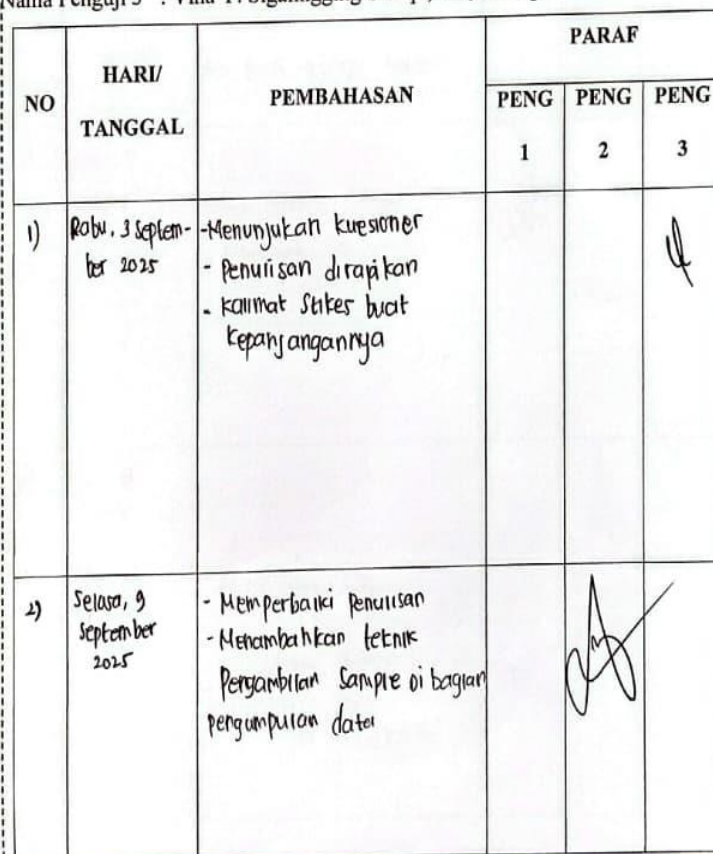 Nama Penguji 3
NO
HARI/
TANGGAL
PEMBAHASAN
PARAF
PENG
1
PENG
2
PENG
3
1)
Rabu, 3 Septem-
ber 2025
-Menunjukan kuesioner
- Penulisan dirapikan
- Kalimat Stikes buat
kepanjangannya
2)
Selasa, 9
September
2025
- Memperbaiki Penulisan
- Menambahkan teknik
Pengambilan Sample di bagian
pengumpulan data